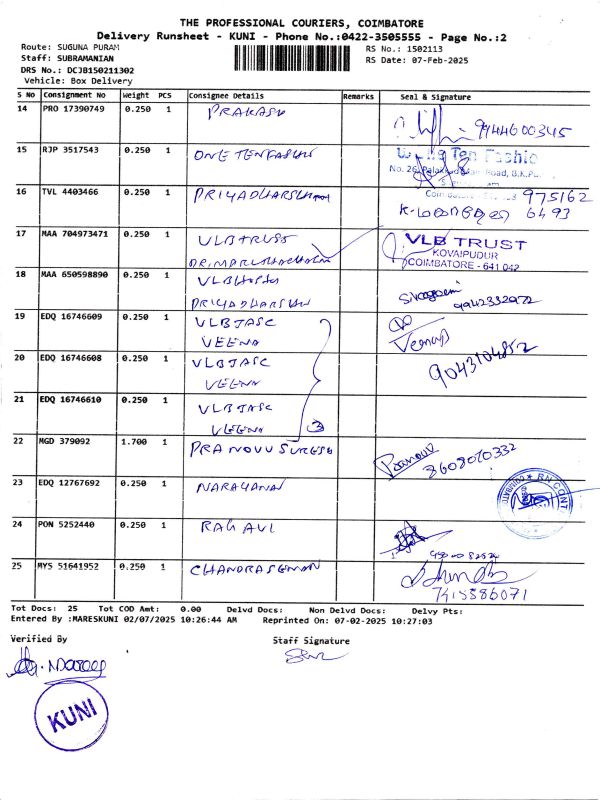 THE PROFESSIONAL COURIERS, COIMBATORE
Delivery Runsheet - KUNI - Phone No.:0422-3505555 - Page No.:2
Route: SUGUNA PURAM
RS No.: 1502113
Staff: SUBRAMANIAN
RS Date: 07-Feb-2025
DRS No.: DCJB150211302
Vehicle: Box Delivery
S No Consignment No Weight PCS Consignee Details Remarks Seal & Signature
14 PRO 17390749 0.250 1 PRAKASH
9944600345
15 RJP 3517543 0.250 1 ONE TEN FASHN
Ten Fashio
No. 26, Palakkad Main Road, B.K.Pu
16 TVL 4403466 0.250 1 PRIYADHARSHINI
975162
6493
17 MAA 704973471 0.250 1 VLB TRUST
VLB TRUST
KOVAIPUDUR
COIMBATORE - 641 042
18 MAA 650598890 0.250 1 VLB
PRIYADHARSHN
9942332972
19 EDQ 16746609 0.250 1 VLBJASC
VEENA
Veena
20 EDQ 16746608 0.250 1 VLBJASC
VEENA
9043104852
21 EDQ 16746610 0.250 1 VLBJASC
VEENA
3
22 MGD 379092 1.700 1 PRANOVU SURESH
Pranav
3608070332
23 EDQ 12767692 0.250 1 NARAYANAN
24 PON 5252440 0.250 1 RAGAVI
25 MYS 51641952 0.250 1 CHANDRASEKAN
7418886071
Tot Docs: 25 Tot COD Amt: 0.00 Delvd Docs: Non Delvd Docs: Delvy Pts:
Entered By :MARESKUNI 02/07/2025 10:26:44 AM Reprinted On: 07-02-2025 10:27:03
Verified By
Staff Signature
KUNI